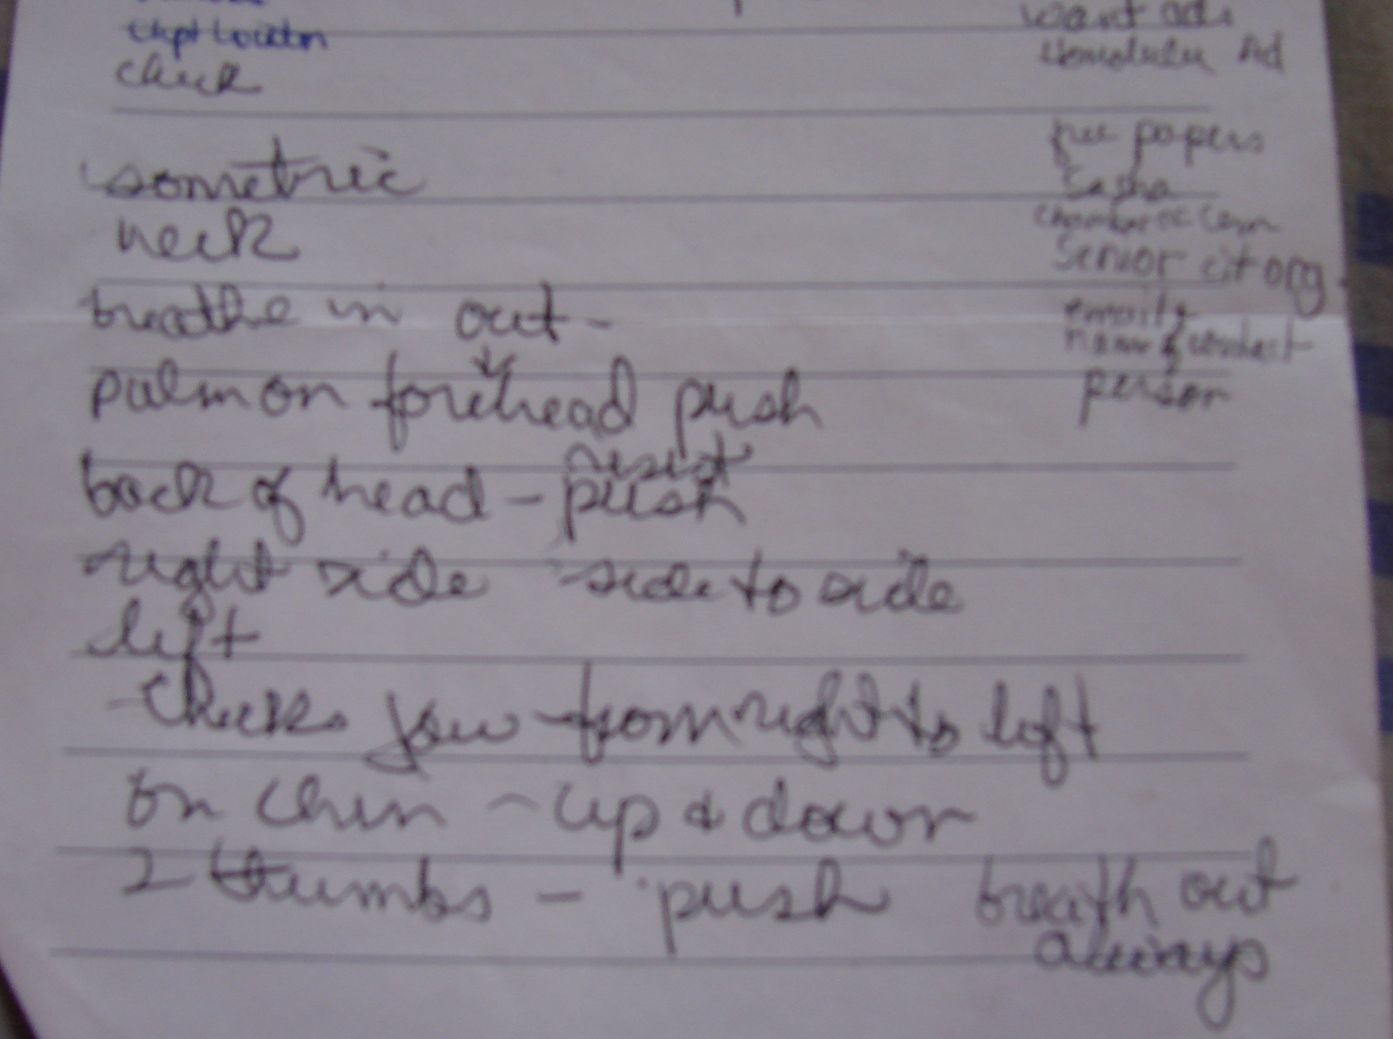 want ads
Honolulu Ad
check
free papers
isometric
Sasha
neck
chamber of Com
Senior cit org.
breathe in out -
emails
name of contact
person
palm on forehead push
resist
back of head - push
right side side to side
left
check jaw from right to left
on chin - up & down
2 thumbs - push breath out
always